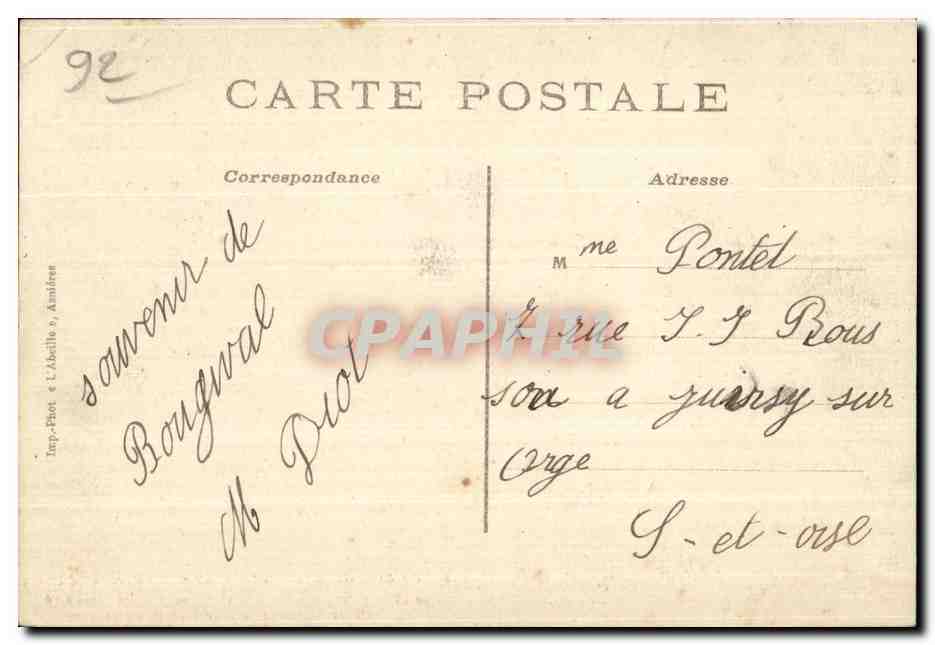 92
CARTE POSTALE
Correspondance
Adresse
souvenir de
Bougival
M Diot
Mme Pontel
7 rue J. J Rous
soa a juivsy sur
Orge
S-et-oise
Imp.-Phot « L'Abeille », Asnières
CPAPHIL